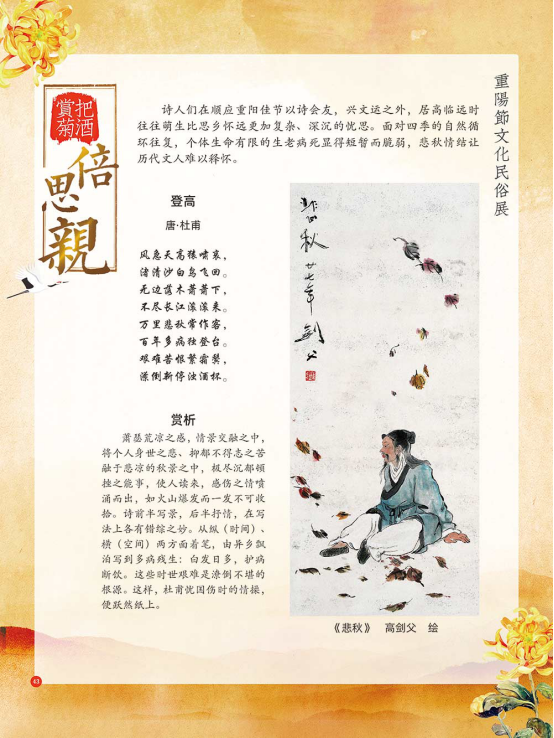 重陽節文化民俗展
把酒
賞菊
倍
思
親
诗人们在顺应重阳佳节以诗会友，兴文运之外，居高临远时
往往萌生比思乡怀远更加复杂、深沉的忧思。面对四季的自然循
环往复，个体生命有限的生老病死显得短暂而脆弱，悲秋情结让
历代文人难以释怀。
登高
唐·杜甫
风急天高猿啸哀，
渚清沙白鸟飞回。
无边落木萧萧下，
不尽长江滚滚来。
万里悲秋常作客，
百年多病独登台。
艰难苦恨繁霜鬓，
潦倒新停浊酒杯。
赏析
萧瑟荒凉之感，情景交融之中，
将个人身世之悲、抑郁不得志之苦
融于悲凉的秋景之中，极尽沉郁顿
挫之能事，使人读来，感伤之情喷
涌而出，如火山爆发而一发不可收
拾。诗前半写景，后半抒情，在写
法上各有错综之妙。从纵（时间）、
横（空间）两方面着笔，由异乡飘
泊写到多病残生：白发日多，护病
断饮。这些时世艰难是潦倒不堪的
根源。这样，杜甫忧国伤时的情操，
便跃然纸上。
悲秋
廿七年
剑父
《悲秋》 高剑父 绘
43